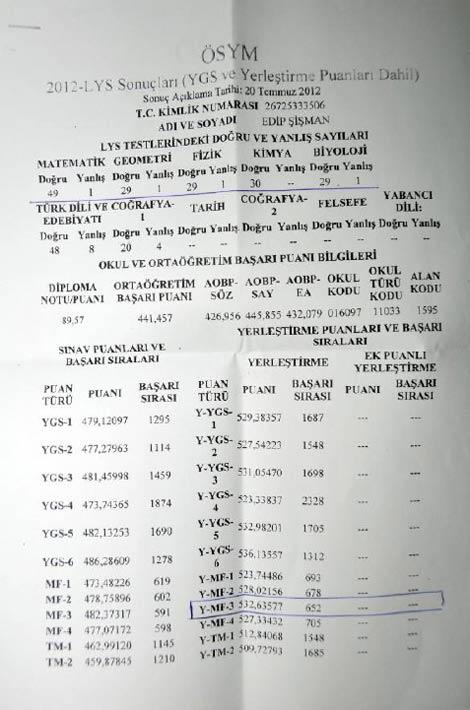 ÖSYM
2012-LYS Sonuçları (YGS ve Yerleştirme Puanları Dahil)
Sonuç Açıklama Tarihi: 20 Temmuz 2012
T.C. KİMLİK NUMARASI 26725333506
ADI VE SOYADI EDİP ŞİŞMAN
LYS TESTLERİNDEKİ DOĞRU VE YANLIŞ SAYILARI
MATEMATİK GEOMETRİ FİZİK KİMYA BİYOLOJİ
Doğru Yanlış Doğru Yanlış Doğru Yanlış Doğru Yanlış Doğru Yanlış
49 1 29 1 29 1 30 -- 29 1
TÜRK DİLİ VE COĞRAFYA- TARİH COĞRAFYA- FELSEFE YABANCI
EDEBİYATI 1 2 DİL:
Doğru Yanlış Doğru Yanlış Doğru Yanlış Doğru Yanlış Doğru Yanlış Doğru Yanlış
48 8 20 4 -- -- -- -- -- -- -- --
OKUL VE ORTAÖĞRETİM BAŞARI PUANI BİLGİLERİ
DİPLOMA ORTAÖĞRETİM AOBP- AOBP- AOBP- OKUL OKUL ALAN
NOTU/PUANI BAŞARI PUANI SÖZ SAY EA KODU TÜRÜ KODU
KODU
89,57 441,457 426,956 445,855 432,079 016097 11033 1595
YERLEŞTİRME PUANLARI VE BAŞARI
SIRALARI
SINAV PUANLARI VE
BAŞARI SIRALARI
YERLEŞTİRME
EK PUANLI
YERLEŞTİRME
PUAN TÜRÜ PUANI BAŞARI SIRASI PUAN TÜRÜ PUANI BAŞARI SIRASI PUANI BAŞARI SIRASI
YGS-1 479,12097 1295 Y-YGS-1 529,38357 1687 --- ---
YGS-2 477,27963 1114 Y-YGS-2 527,54223 1548 --- ---
YGS-3 481,45998 1459 Y-YGS-3 531,05470 1698 --- ---
YGS-4 473,74365 1874 Y-YGS-4 523,33837 2328 --- ---
YGS-5 482,13253 1690 Y-YGS-5 532,98201 1705 --- ---
YGS-6 486,28609 1278 Y-YGS-6 536,13557 1312 --- ---
MF-1 473,48226 619 Y-MF-1 523,74486 693 --- ---
MF-2 478,75896 602 Y-MF-2 528,02156 678 --- ---
MF-3 482,37317 591 Y-MF-3 532,63577 652 --- ---
MF-4 477,07172 598 Y-MF-4 527,33432 705 --- ---
TM-1 462,99120 1145 Y-TM-1 512,84068 1548 --- ---
TM-2 459,87845 1210 Y-TM-2 509,72793 1685 --- ---